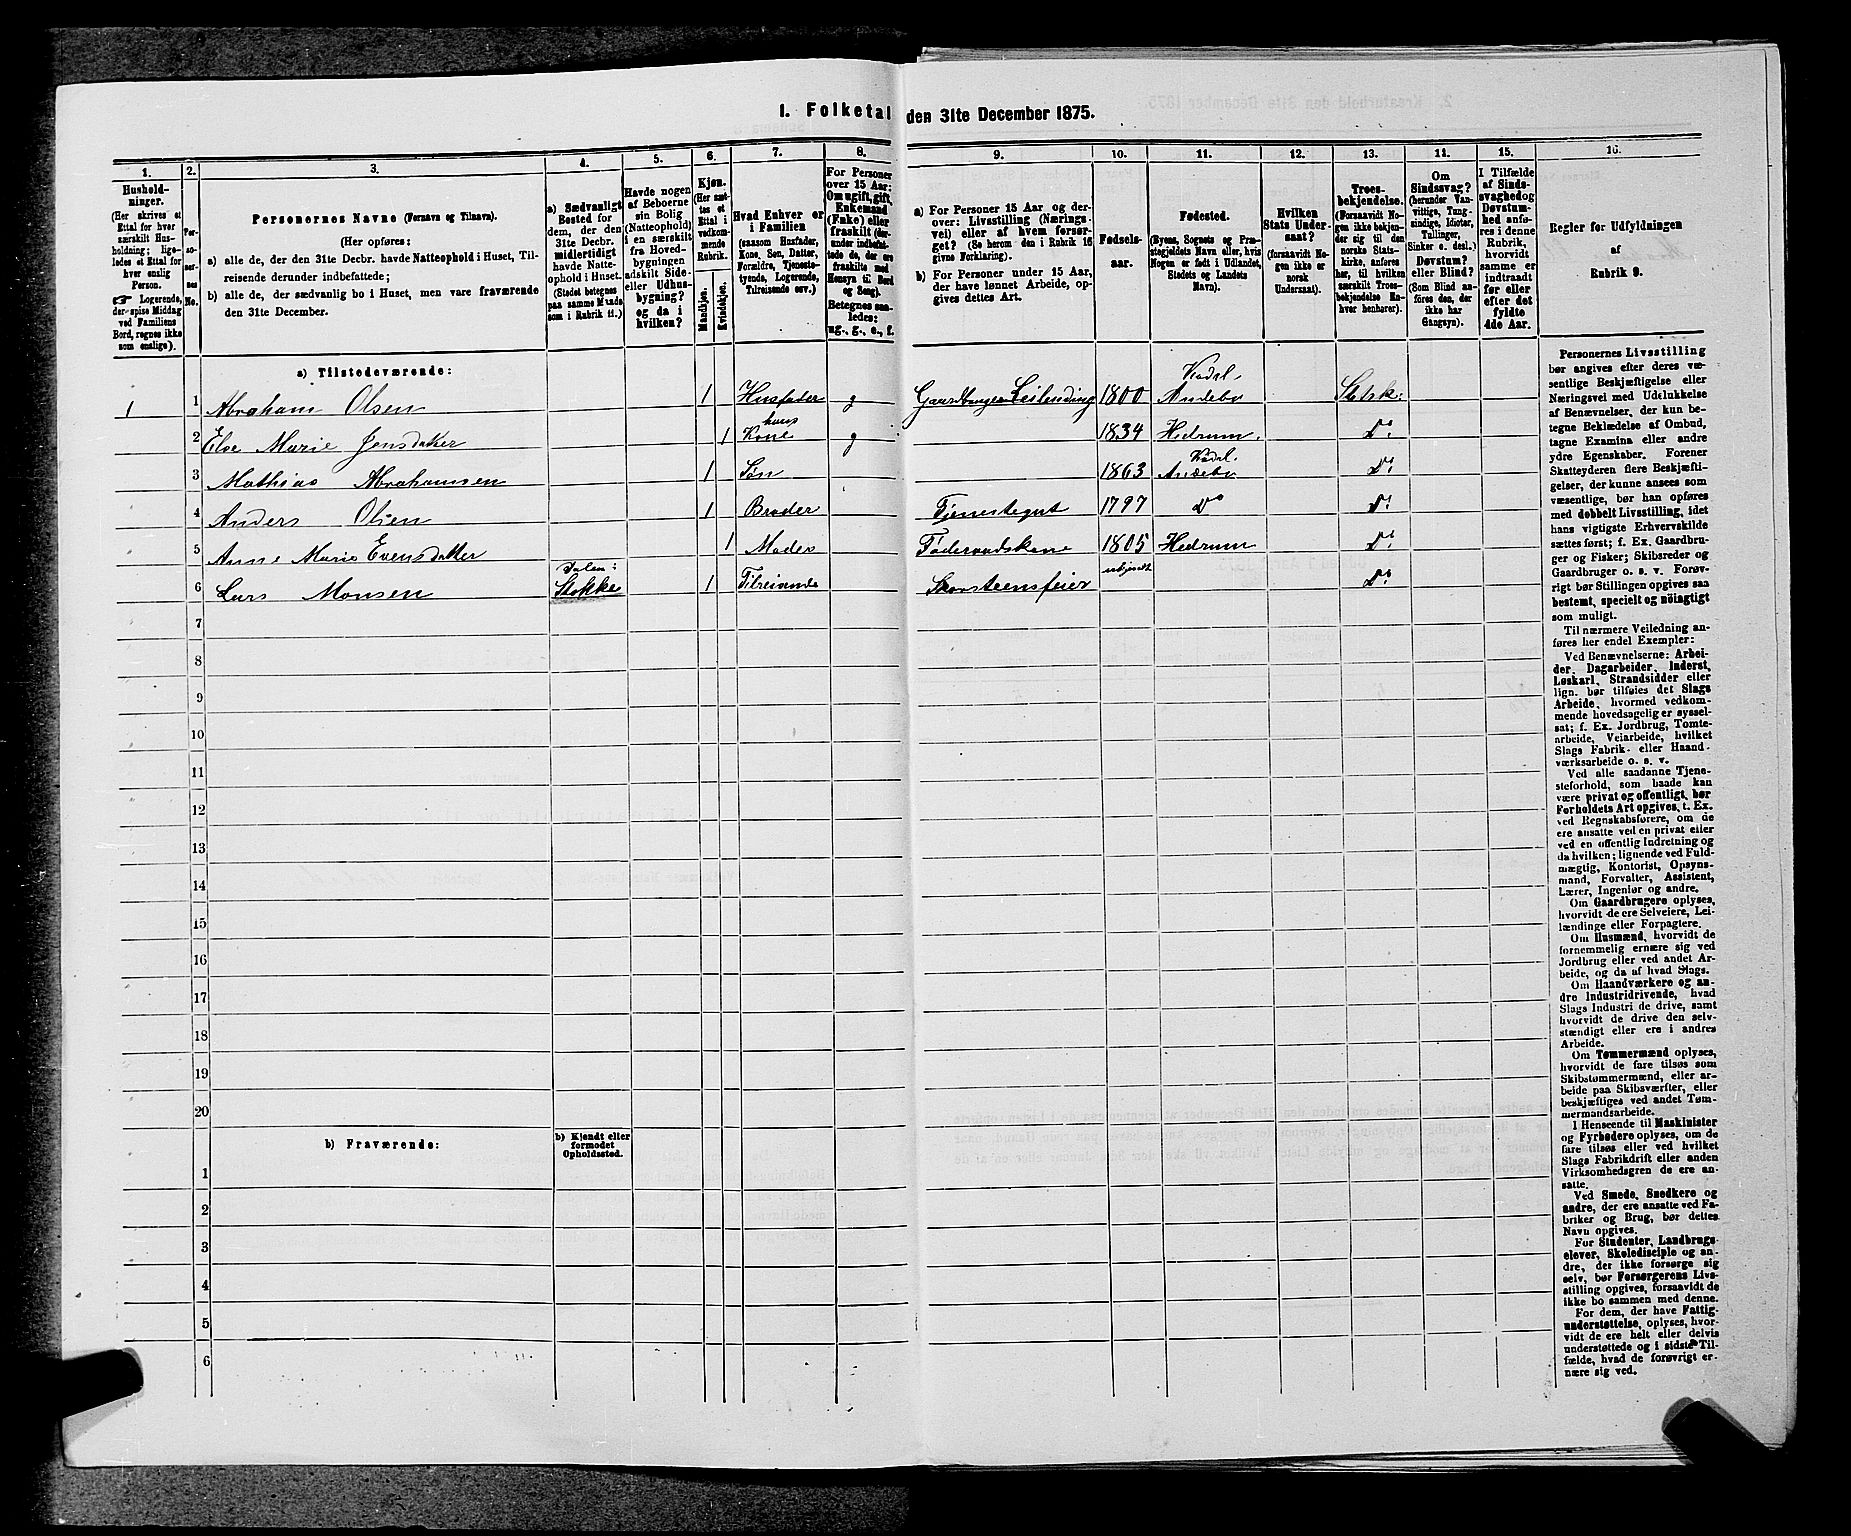 1. Folketal den 31te December 1875.
1. 2. 3. 4. 5. 6. 7. 8. 9. 10. 11. 12. 13. 14. 15. 16.
Hushold-
ninger.
(Her skrives et
Ettal for hver
særskilt Hus-
holdning; lige-
ledes et Ettal for
hver enslig
Person.
☞ Logerende,
der spise Middag
ved Familiens
Bord, regnes ikke
som enslige).
Per-
so-
ner-
nes
No.
Personernes Navne (Fornavn og Tilnavn).
(Her opføres:
a) alle de, der den 31te Decbr. havde Natteophold i Huset, Til-
reisende derunder indbefattede;
b) alle de, der sædvanlig bo i Huset, men vare fraværende
den 31te December.
a) Sædvanligt
Bosted for
dem, der den
31te Decbr.
midlertidigt
havde Natte-
ophold i Huset.
(Stedet betegnes
paa samme Maade
som i Rubrik 11.)
Havde nogen
af Beboerne
sin Bolig
(Natteophold)
i en særskilt
fra Hoved-
bygningen
adskilt Side-
eller Udhus-
bygning?
og da i
hvilken?
Kjøn.
(Her sæt-
tes et
Ettal i
vedkom-
mende
Rubrik.
Mandkjøn.
Kvindekjøn.
Hvad Enhver er
i Familien
(saasom Husfader,
Kone, Søn, Datter,
Forældre, Tjeneste-
tyende, Logerende,
Tilreisende osv.)
For Personer
over 15 Aar:
Om ugift, gift,
Enkemand
(Enke) eller
fraskilt (der-
under indbefat-
tede de, der ere
fraskilte med
Hensyn til Bord
og Seng).
Betegnes saa-
ledes:
ug., g., e., f.
a) For Personer 15 Aar og der-
over: Livsstilling (Nærings-
vei) eller af hvem forsør-
get? (Se herom den i Rubrik 16
givne Forklaring).
b) For Personer under 15 Aar,
der have lønnet Arbeide, op-
gives dettes Art.
Fødsels-
aar.
Fødested.
(Byens, Sognets og Præ-
stegjeldets Navn eller, hvis
Nogen er født i Udlandet,
Stedets og Landets
Navn).
Hvilken
Stats Under-
saat?
(forsaavidt No-
gen ikke er
norsk
Undersaat).
Troes-
bekjendelse.
(Forsaavidt No-
gen ikke bekjen-
der sig til den
norske Stats-
kirke, anføres
her, til hvilken
særskilt Troes-
bekjendelse En-
hver henhører).
Om
Sindssvag?
(herunder Van-
vittige, Tung-
sindige, Idioter,
Tullinger,
Sinker o. desl.)
Døvstum?
eller Blind?
(Som Blind an-
føres den, der
ikke har
Gangsyn).
I Tilfælde
af Sinds-
svaghed og
Døvstum-
hed anfø-
res i denne
Rubrik,
hvorvidt
samme er
indtraadt
før eller
efter det
fyldte
4de Aar.
Regler for Udfyldningen
af
Rubrik 9.
a) Tilstedeværende:
1 1 Abraham Olsen 1 Husfader g Gaardbruger Leilending 1800 Kodal. Andebo Statsk:
2 Else Marie Jensdatter 1 hans Kone g 1834 Hedrum. Do
3 Mathias Abrahamsen 1 Søn 1863 Kodal. Andebo Do
4 Anders Olsen 1 Broder Tjenestegut 1797 Do Do
5 Anne Marie Evensdatter 1 Moder Føderaadskone 1805 Hedrum Do
6 Lars Monsen Dalen: Stokke 1 Tilreisende Skorsteensfeier ubekjendt Do
7
8
9
10
11
12
13
14
15
16
17
18
19
20
b) Fraværende:
b) Kjendt eller
formodet
Opholdssted.
1
2
3
4
5
6
Personernes Livsstilling
bør angives efter deres væ-
sentlige Beskjæftigelse eller
Næringsvei med Udelukkelse
af Benævnelser, der kun be-
tegne Beklædelse af Ombud,
tagne Examina eller andre
ydre Egenskaber. Forener
Skatteyderen flere Beskjæfti-
gelser, der kunne ansees som
væsentlige, bør han opføres
med dobbelt Livsstilling, idet
hans vigtigste Erhvervskilde
sættes først; f. Ex. Gaardbru-
ger og Fisker; Skibsreder og
Gaardbruger o. s. v. Forøv-
rigt bør Stillingen opgives saa
bestemt, specielt og nøiagtigt
som muligt.
Til nærmere Veiledning an-
føres her endel Exempler:
Ved Benævnelserne: Arbei-
der, Dagarbeider, Inderst,
Løskarl, Strandsidder eller
lign. bør tilføies det Slags
Arbeide, hvormed vedkom-
mende hovedsagelig er syssel-
sat; f. Ex. Jordbrug, Tomte-
arbeide, Veiarbeide, hvilket
Slags Fabrik- eller Haand-
værksarbeide o. s. v.
Ved alle saadanne Tjene-
steforhold, som baade kan
være privat og offentligt, bør
Forholdets Art opgives, t. Ex.
ved Regnskabsførere, om de
ere ansatte ved en privat eller
ved en offentlig Indretning og
da hvilken; lignende ved Fuld-
mægtig, Kontorist, Opsyns-
mand, Forvalter, Assistent,
Lærer, Ingeniør og andre.
Om Gaardbrugere oplyses,
hvorvidt de ere Selveiere, Lei-
lændinge eller Forpagtere.
Om Husmænd, hvorvidt de
fornemmelig ernære sig ved
Jordbrug eller ved andet Ar-
beide, og da af hvad Slags.
Om Haandværkere og an-
dre Industridrivende, hvad
Slags Industri de drive, samt
hvorvidt de drive den selv-
stændigt eller ere i andres
Arbeide.
Om Tømmermænd oplyses,
hvorvidt de fare tilsøs som
Skibstømmermænd, eller ar-
beide paa Skibsværfter, eller
beskjæftiges ved andet Tøm-
mermandsarbeide.
I Henseende til Maskinister
og Fyrbødere oplyses, om de
fare tilsøs eller ved hvilket
Slags Fabrikdrift eller anden
Virksomhedsgren de ere an-
satte.
Ved Smede, Snedkere og
andre, der ere ansatte ved Fa-
briker og Brug, bør dettes
Navn opgives.
For Studenter, Landbrugs-
elever, Skoledisciple og an-
dre, der ikke forsørge sig
selv, bør Forsørgerens Livs-
stilling opgives, forsaavidt de
ikke bo sammen med denne.
For dem, der have Fattig-
understøttelse, oplyses, hvor-
vidt de ere helt eller delvis
understøttede og i sidste Til-
fælde, hvad de forøvrigt er-
nære sig ved.